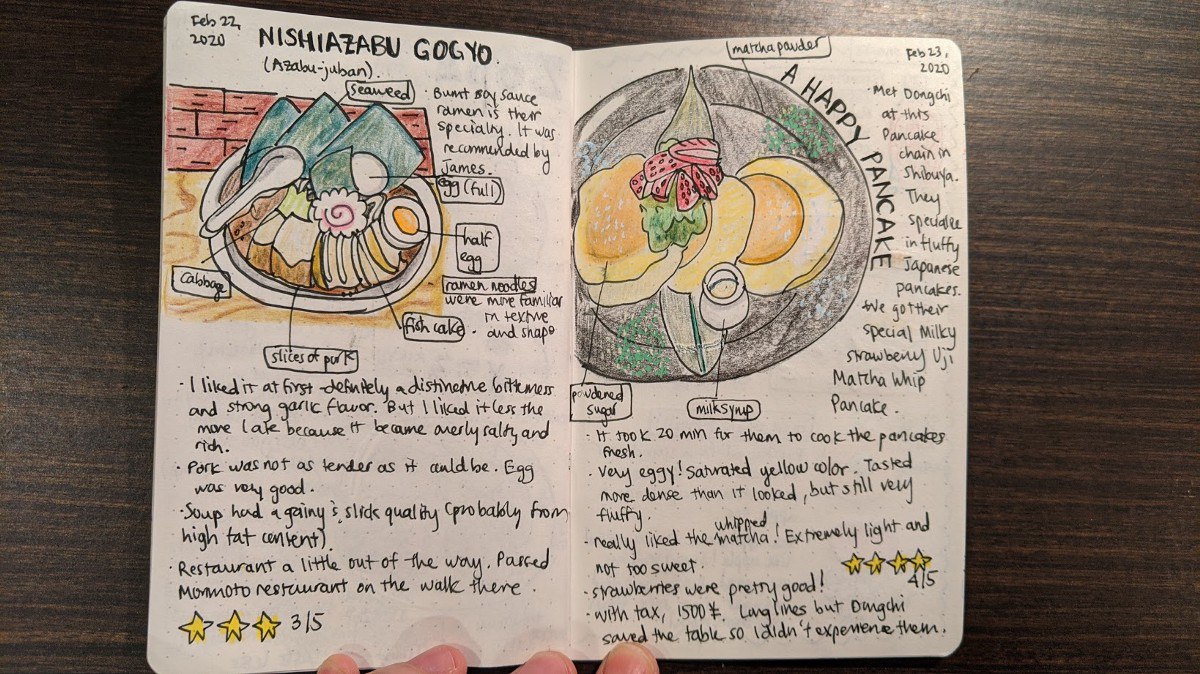 Feb 22,
2020
NISHIAZABU GOGYO
(Azabu-juban).
seaweed
· Burnt soy sauce
ramen is their
specialty. It was
recommended by
James.
egg (full)
half
egg
ramen noodles
were more familiar
in texture
and shape
cabbage
fish cake
slices of pork
· I liked it at first - definitely a distinctive bitterness
and strong garlic flavor. But I liked it less the
more I ate because it became overly salty and
rich.
· Pork was not as tender as it could be. Egg
was very good.
· Soup had a grainy & slick quality (probably from
high fat content)
· Restaurant a little out of the way. Passed
Morimoto restaurant on the walk there.
3/5
matcha powder
Feb 23,
2020
A HAPPY PANCAKE
· Met Dongchi
at this
Pancake
chain in
Shibuya.
They
specialize
in fluffy
Japanese
pancakes.
· We got their
special Milky
strawberry Uji
Matcha Whip
Pancake.
powdered
sugar
milk syrup
· It took 20 min for them to cook the pancakes
fresh.
· Very eggy! Saturated yellow color. Tasted
more dense than it looked, but still very
fluffy.
· really liked the whipped matcha! Extremely light and
not too sweet.
4/5
· strawberries were pretty good!
· with tax, 1500 ¥. Long lines but Dongchi
saved the table so I didn't experience them.